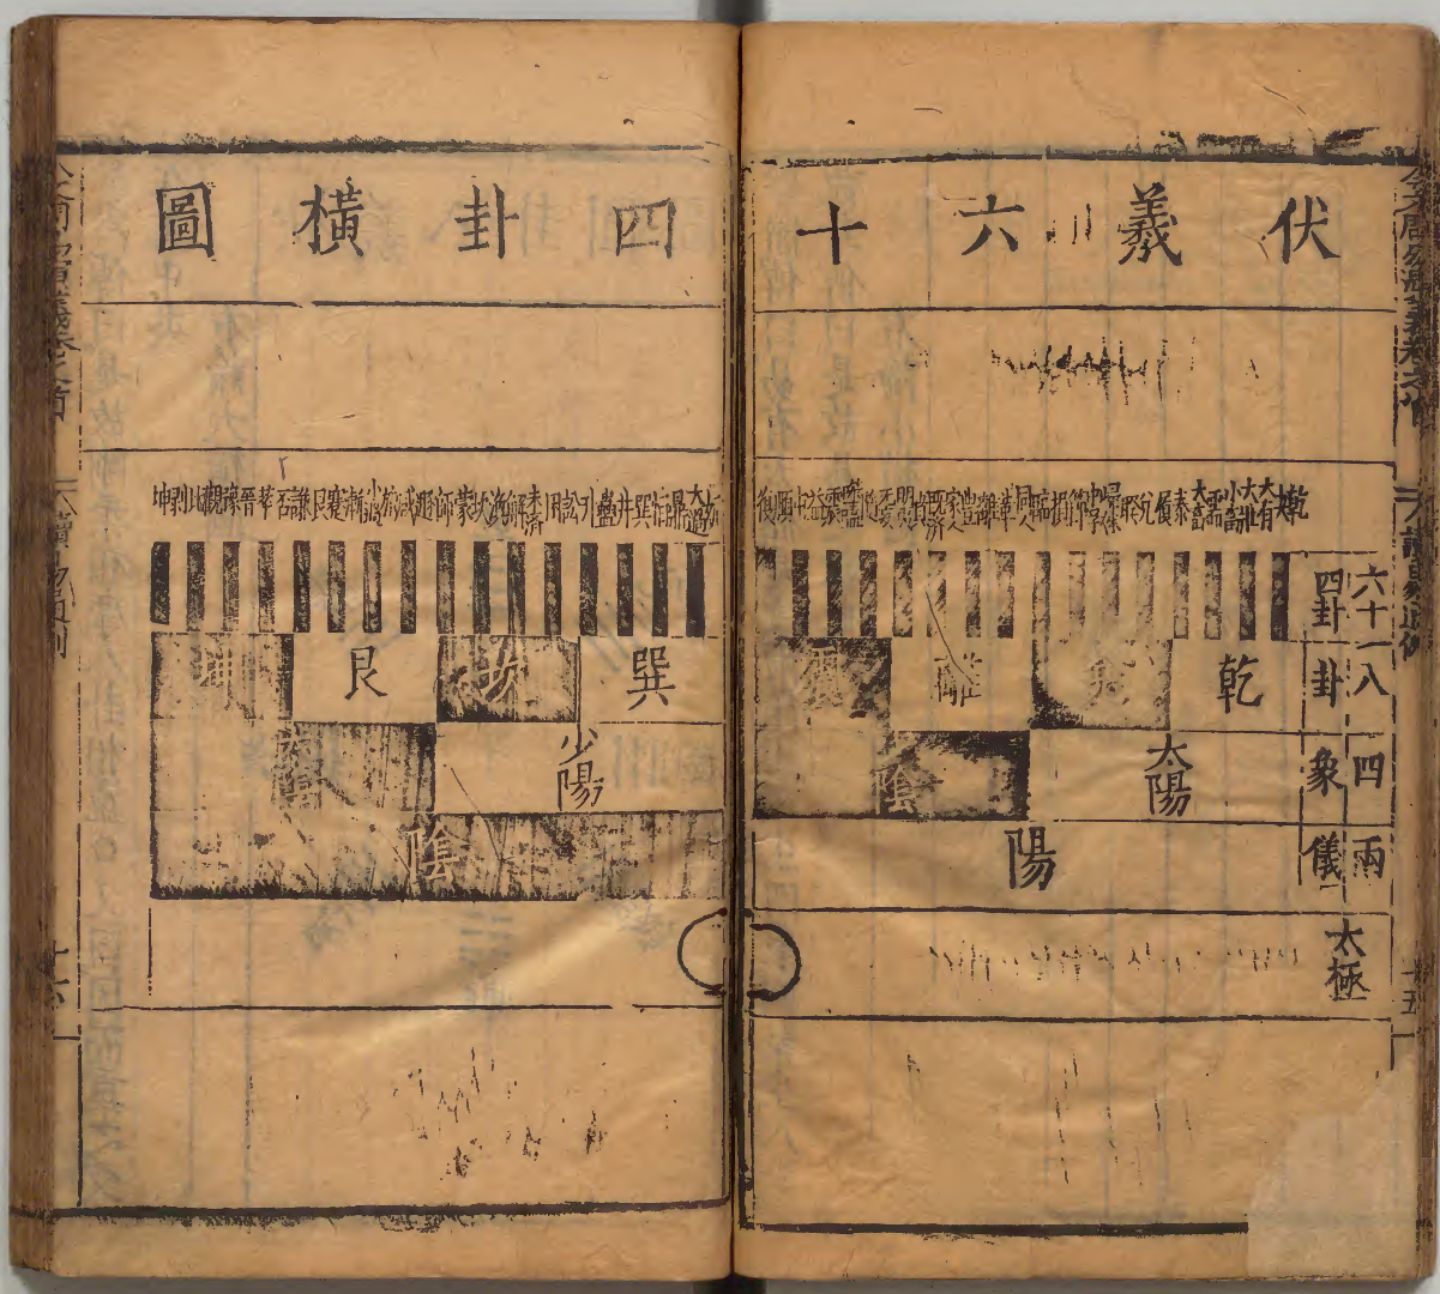 伏羲六十四卦橫圖
乾夬大有大壯小畜需大畜泰履兌睽歸妹中孚節損臨同人革離豐家人既濟賁明夷无妄隨噬嗑震益屯頤復
姤大過鼎恒巽井蠱升訟困未濟解渙坎蒙師遯咸旅小過漸蹇艮謙否萃晉豫觀比剝坤
六十四卦
八卦 乾 兌 離 震 巽 坎 艮 坤
四象 太陽 陰 少陽 陰
兩儀 陽 陰
太極